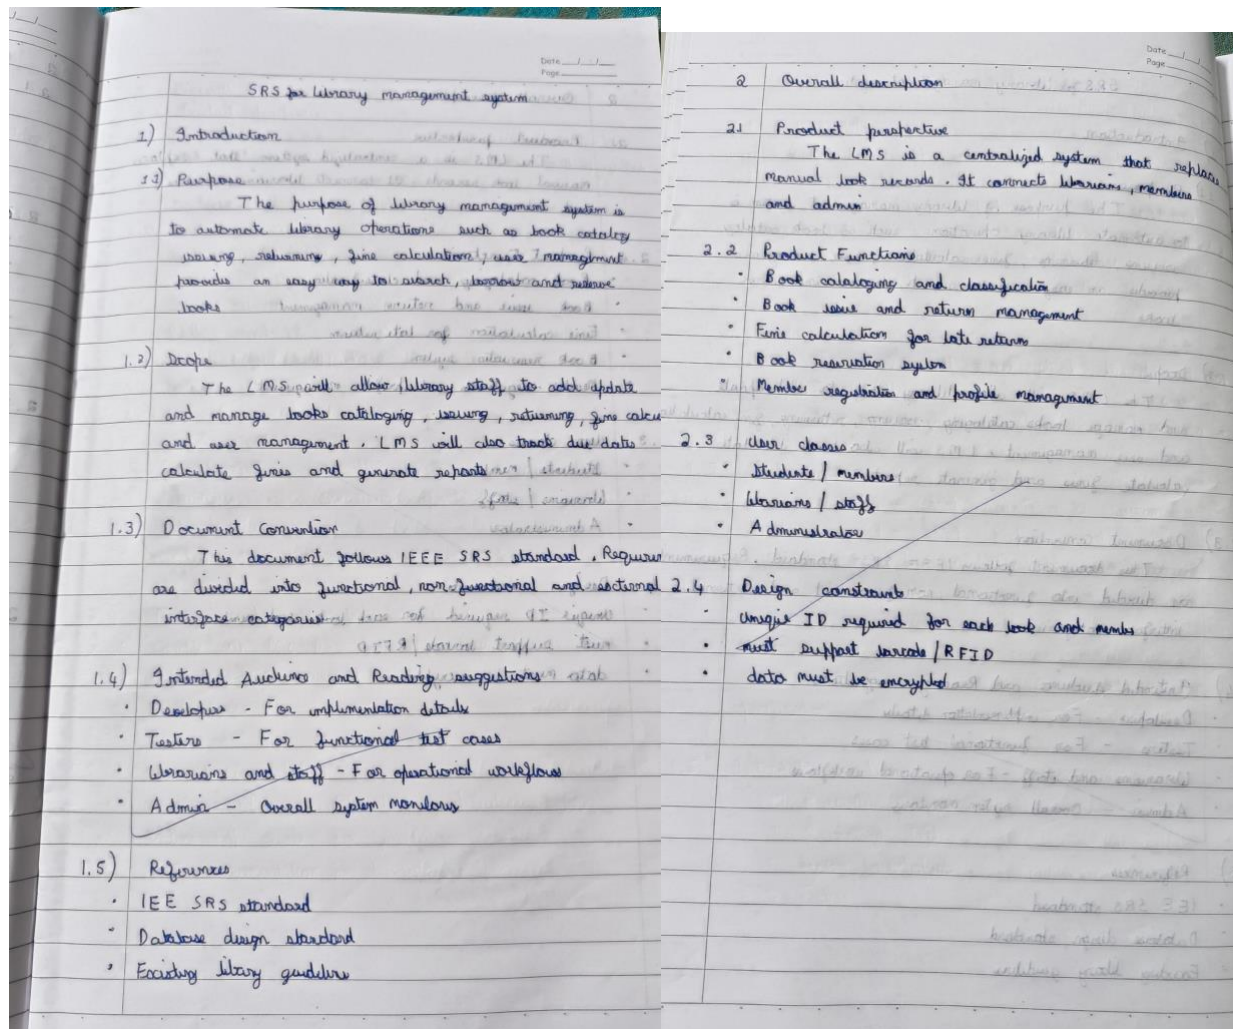 Date __/__/__
Page ______
SRS for library management system
1) Introduction
1.1) Purpose
The purpose of library management system is
to automate library operations such as book catalog
issuing, returning, fine calculation, user managment
provides an easy way to search, borrow and reserve
books
1.2) Scope
The LMS will allow library staff to add update
and manage books cataloging, issuing, returning, fine calcu
and user management. LMS will also track due dates
calculate fines and generate reports
1.3) Document Convention
This document follows IEEE SRS standard. Requirem
are divided into functional, non-functional and external
interface categories
1.4) Intended Audience and Reading suggestions
· Developers - For implementation details
· Testers - For functional test cases
· Librarians and staff - For operational workflows
· Admin - Overall system monitors
1.5) References
· IEE SRS standard
· Database design standard
· Existing library guideline
Date __/__/__
Page ______
2 Overall description
2.1 Product perspective
The LMS is a centralized system that replaces
manual book records. It connects librarians, members
and admin
2.2 Product Functions
· Book cataloging and classification
· Book issue and return management
· Fine calculation for late returns
· Book reservation system
· Member registration and profile management
2.3 User classes
· Students / members
· librarians / staff
· Administrator
2.4 Design constraints
· Unique ID required for each book and member
· must support barcode/RFID
· data must be encrypted